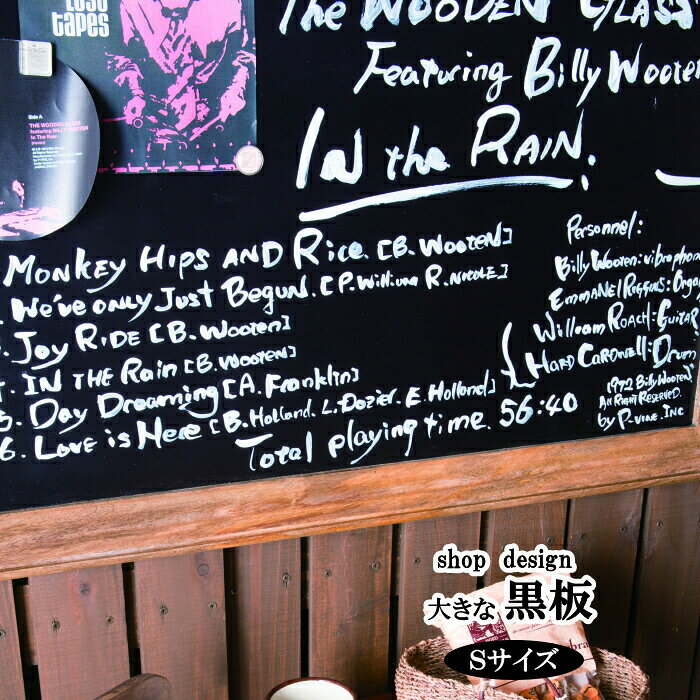 LOST
tapes
Side A
THE WOODEN GLASS
featuring BILLY WOOTEN
In The Rain
The WOODEN GLASS
Featuring Billy Wooten
IN the RAIN.
MONKEY HIPS AND Rice [B. WOOTEN]
We've only Just Begun. [P. William R. NICOLE]
Joy RIDE [B. Wooten]
IN THE Rain [B. WOOTEN]
Day Dreaming [A. Franklin]
6. Love is Here [B. Holland. L. Dozier. E. Holland]
Total playing time. 56:40
Personnel:
Billy Wooten: vibraphon
William ROACH: GUITAR
HARD CARDWELL: Drum
1972 Billy WOOTEN
All Right RESERVED.
by P-VINE. INC
shop design
大きな 黒板
Sサイズ